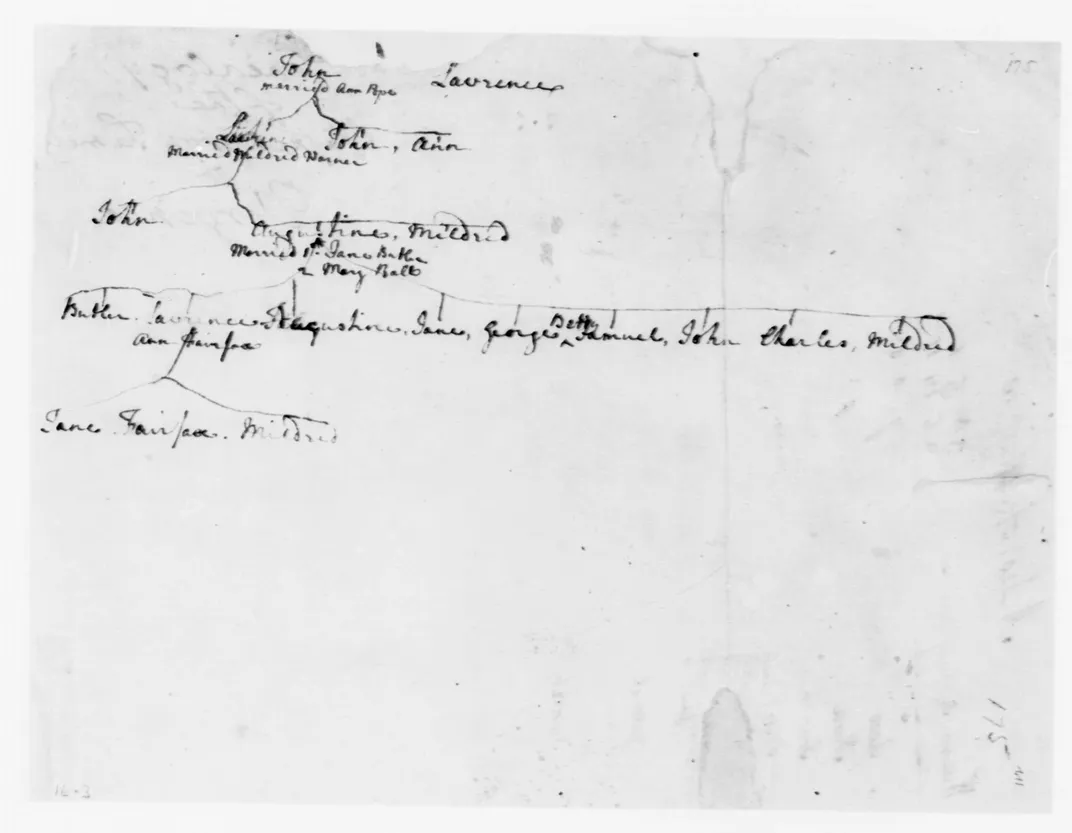 John Lawrence
married Ann Pope
John, Ann
Married Mildred Warner
John
Augustine, Mildred
Married 1st. Jane Butler
2 Mary Ball
Butler. Lawrence. Augustine, Jane, George Betty ^ Samuel, John Charles, Mildred
Ann Fairfax
Jane. Fairfax. Mildred
175
175